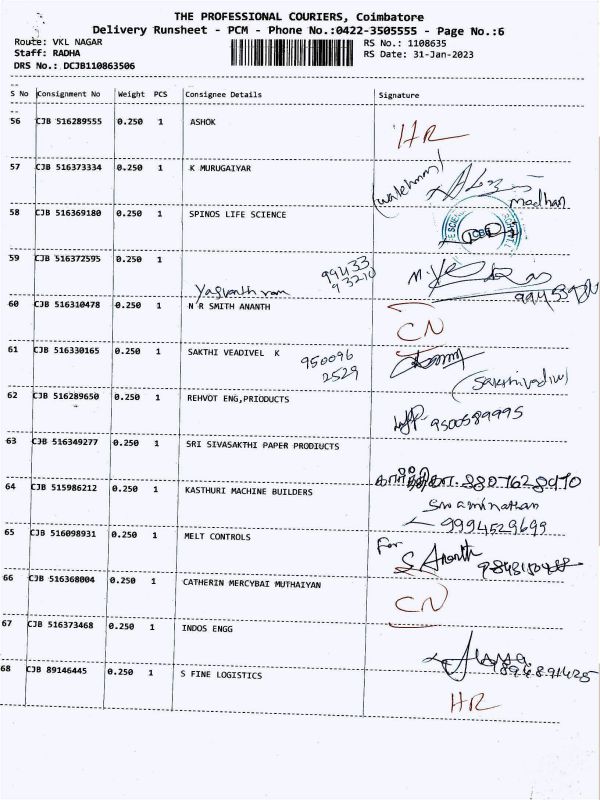 THE PROFESSIONAL COURIERS, Coimbatore
Delivery Runsheet - PCM - Phone No.:0422-3505555 - Page No.:6
Route: VKL NAGAR RS No.: 1108635
Staff: RADHA RS Date: 31-Jan-2023
DRS No.: DCJB110863506
S No Consignment No Weight PCS Consignee Details Signature
56 CJB 516289555 0.250 1 ASHOK
HR
57 CJB 516373334 0.250 1 K MURUGAIYAR
madhan
58 CJB 516369180 0.250 1 SPINOS LIFE SCIENCE
59 CJB 516372595 0.250 1
99433
93210
Yasvanth ram
60 CJB 516310478 0.250 1 N R SMITH ANANTH
CN
61 CJB 516330165 0.250 1 SAKTHI VEADIVEL K
950096
2529
(Sakthivadivel)
62 CJB 516289650 0.250 1 REHVOT ENG,PRIODUCTS
9500589995
63 CJB 516349277 0.250 1 SRI SIVASAKTHI PAPER PRODIUCTS
64 CJB 515986212 0.250 1 KASTHURI MACHINE BUILDERS
Swaminathan
9994529699
65 CJB 516098931 0.250 1 MELT CONTROLS
For
S Ananth
66 CJB 516368004 0.250 1 CATHERIN MERCYBAI MUTHAIYAN
CN
67 CJB 516373468 0.250 1 INDOS ENGG
68 CJB 89146445 0.250 1 S FINE LOGISTICS
HR